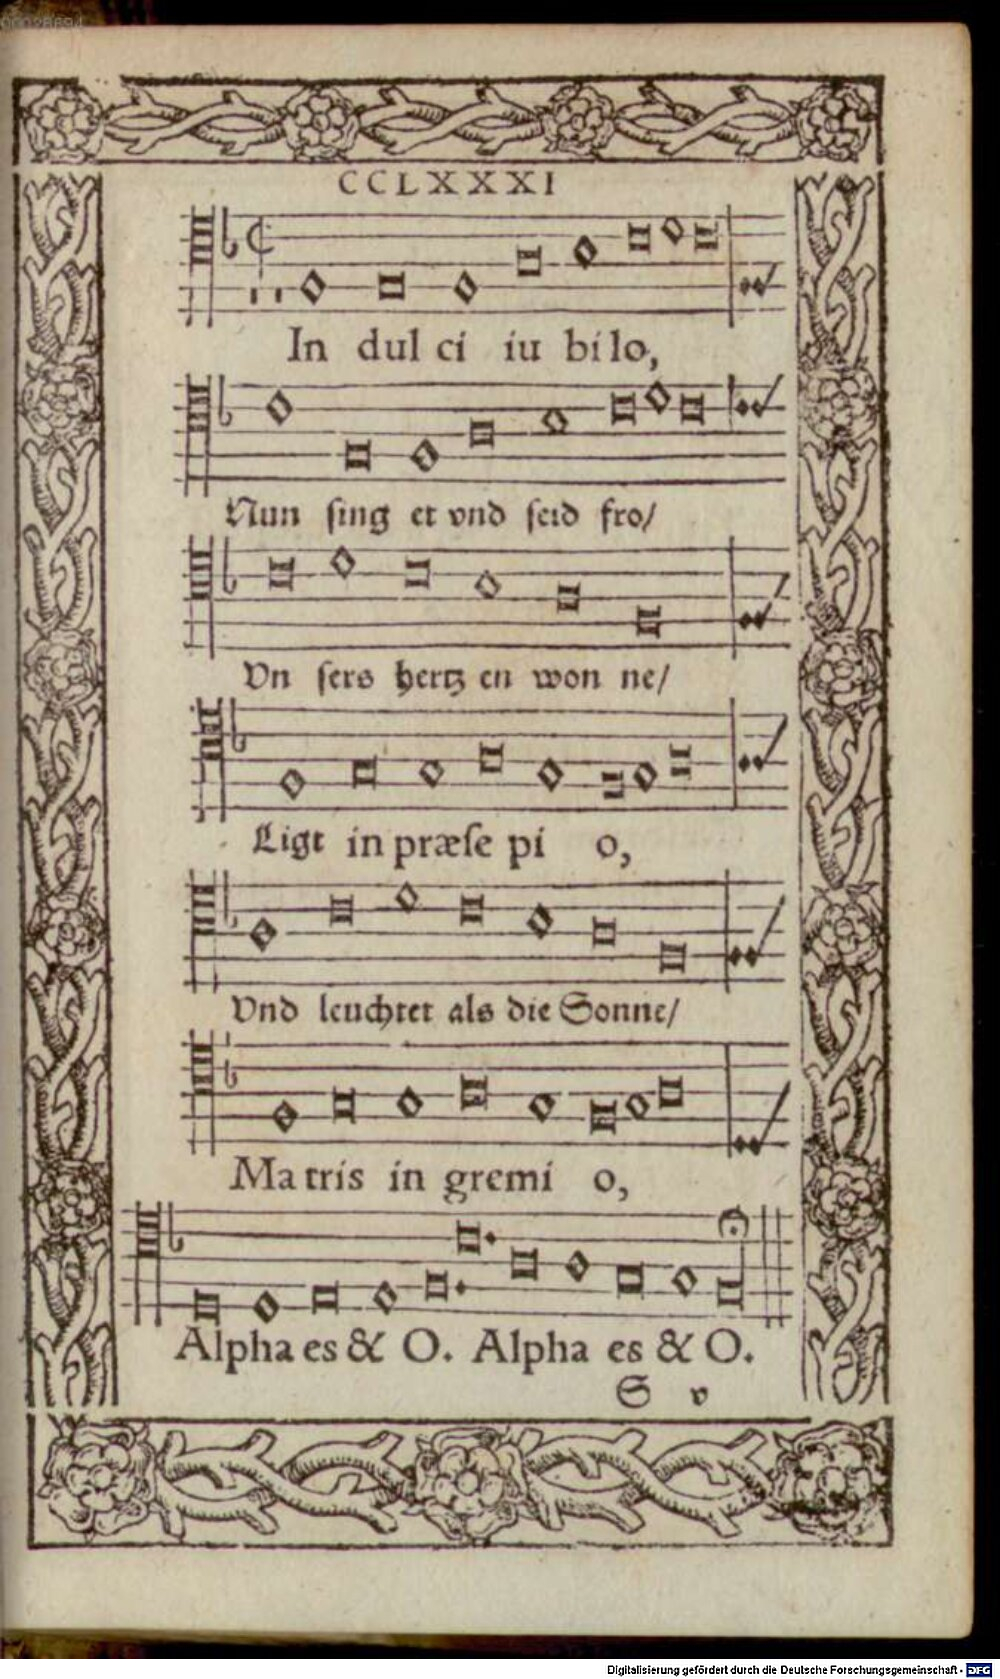 00028694
CCLXXXI
In dul ci iu bi lo,
Nun ſing et vnd ſeid fro/
Vn ſers hertz en won ne/
Ligt in præſe pi o,
Vnd leuchtet als die Sonne/
Ma tris in gremi o,
Alpha es & O. Alpha es & O.
S v
Digitalisierung gefördert durch die Deutsche Forschungsgemeinschaft - DFG